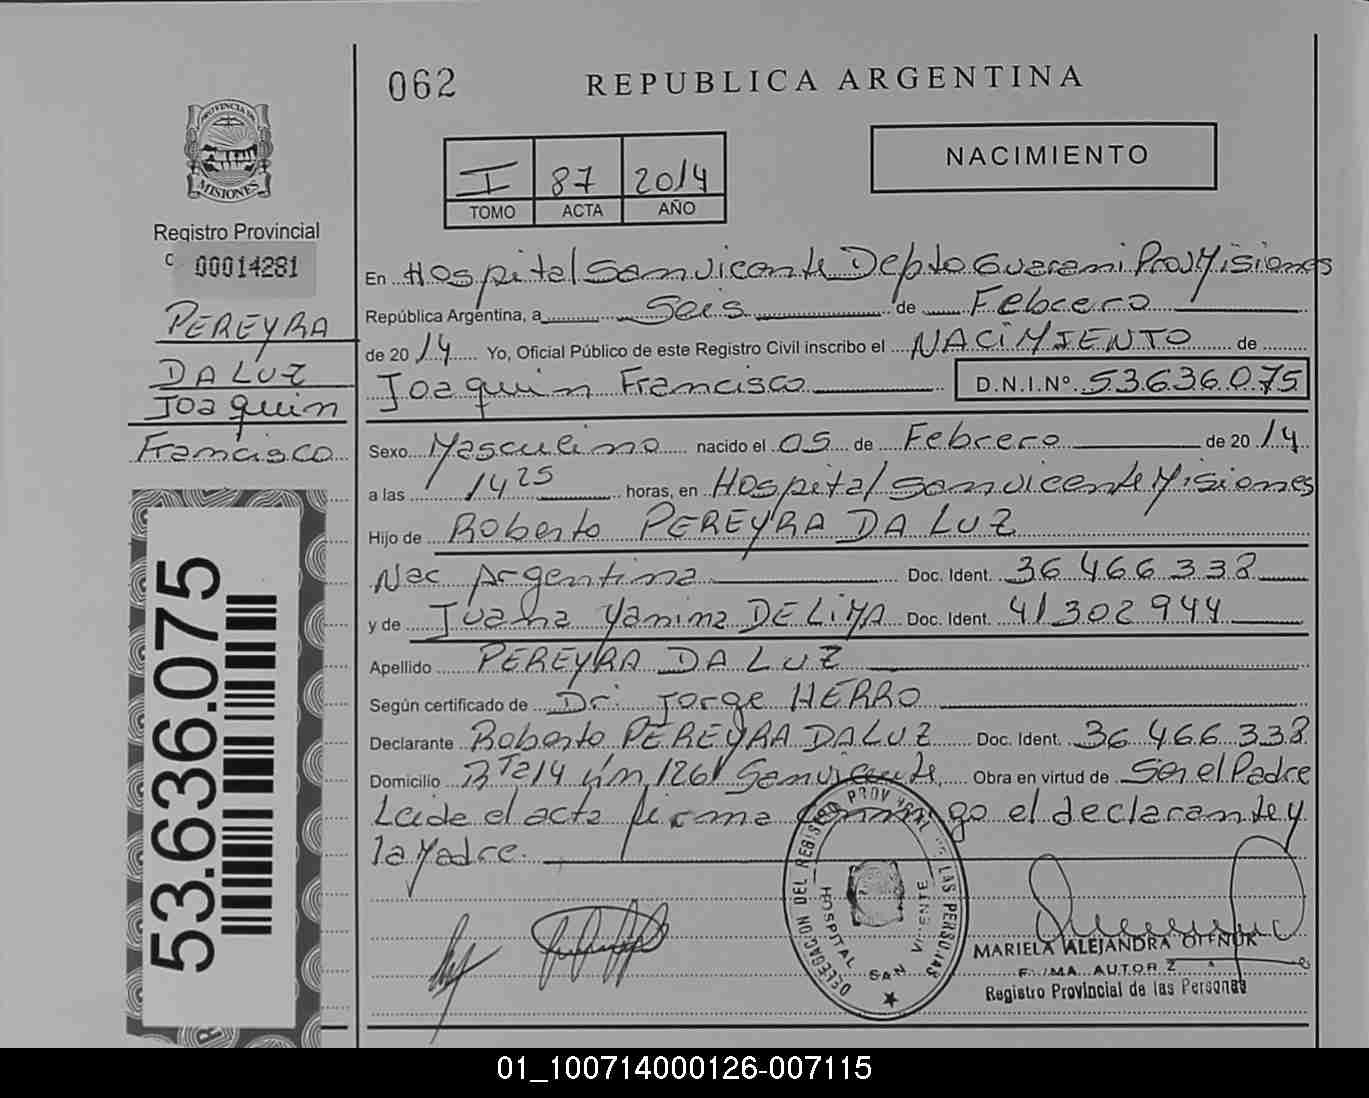 062
REPUBLICA ARGENTINA
PROVINCIA DE
MISIONES
Registro Provincial
C 00014281
I 87 2014
TOMO ACTA AÑO
NACIMIENTO
PEREYRA
DA LUZ
Joaquin
Francisco
53.636.075
En Hospital San vicente Depto Guarani Prov Misiones
República Argentina, a Seis de Febrero
de 2014 Yo, Oficial Público de este Registro Civil inscribo el NACiMIENTO de
Joaquin Francisco D.N.I.Nº. 53.636.075
Sexo Masculino nacido el 05 de Febrero de 2014
a las 14 25 horas, en Hospital San vicente Misiones
Hijo de Roberto PEREYRA DA LUZ
Nac Argentina Doc. Ident. 36 466 338
y de Juana Yanina DE LiMA Doc. Ident. 41 302 944
Apellido PEREYRA DA LUZ
Según certificado de Dr. Jorge HERRO
Declarante Roberto PEREYRA DA LUZ Doc. Ident. 36 466 338
Domicilio Rta 14 km 1261 San vicente, Obra en virtud de Ser el Padre
Leida el acta firma conmigo el declarante y
la Madre.
DELEGACION DEL REGISTRO PROV DE LAS PERSONAS
HOSPITAL SAN VICENTE
MARIELA ALEJANDRA
Registro Provincial de las Personas
01_100714000126-007115